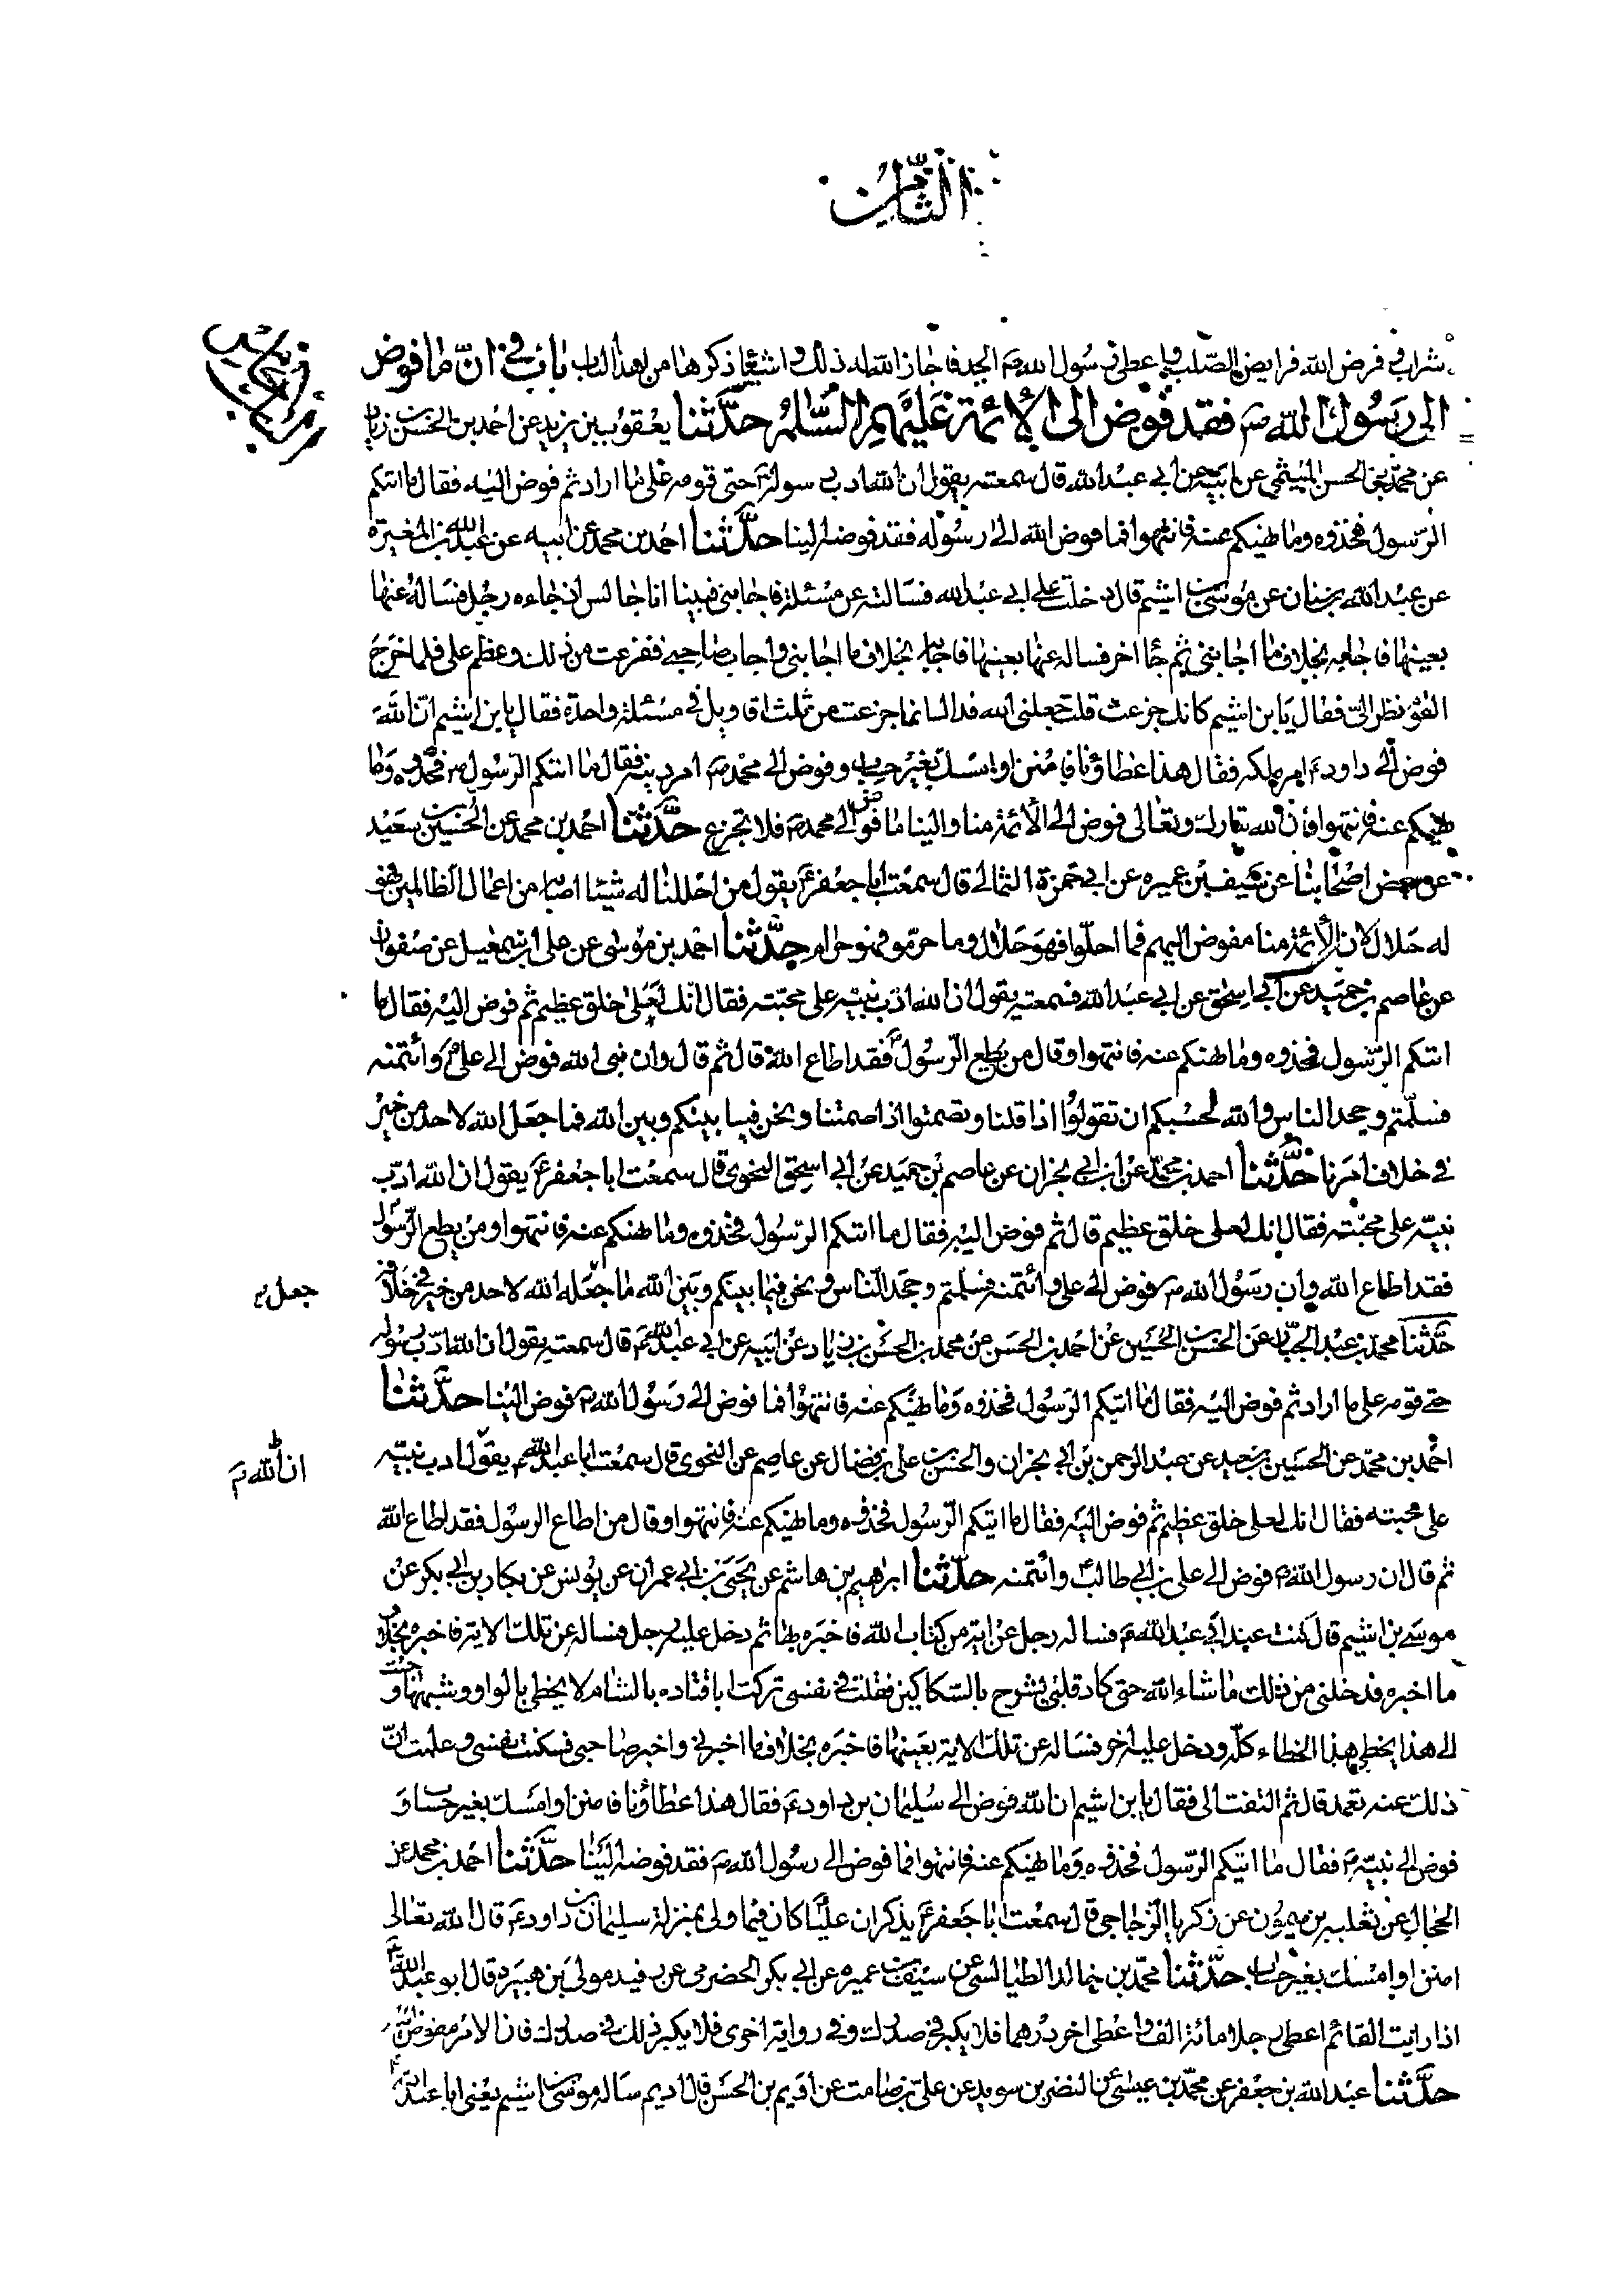 الثامن
شراب وفرض الله فرايض الصلب واعطى رسول الله ص الجد فاجاز الله له ذلك واشياء ذكرها من هذا الباب باب في ان ما فوض
الى رسول الله ص فقد فوض الى الأئمة عليهم السلام حدثنا يعقوب بن يزيد عن احمد بن الحسن بن زياد
عن محمد بن الحسن الميثمي عن ابيه عن ابي عبد الله قال سمعته يقول ان الله ادب رسوله حتى قومه على ما اراد ثم فوض اليه فقال ما اتيكم
الرسول فخذوه وما نهيكم عنه فانتهوا فما فوض الله الى رسوله فقد فوضه الينا حدثنا احمد بن محمد عن ابيه عن عبد الله بن المغيرة
عن عبد الله بن سنان عن موسى بن اشيم قال دخلت على ابي عبد الله فسالته عن مسئلة فاجابني فبينا انا جالس اذ جاءه رجل فساله عنها
بعينها فاجابه بخلاف ما اجابني ثم جاء اخر فساله عنها بعينها فاجابه بخلاف ما اجابني واجاب صاحبي ففزعت من ذلك وعظم علي فلما خرج
القوم نظر الي فقال يا بن اشيم كانك جزعت قلت جعلني الله فداك انما جزعت من ثلث اقاويل في مسئلة واحدة فقال يا بن اشيم ان الله
فوض الى داود ع امر ملكه فقال هذا عطاؤنا فامنن او امسك بغير حساب وفوض الى محمد ص امر دينه فقال ما اتيكم الرسول فخذوه وما
نهيكم عنه فانتهوا فان الله تبارك وتعالى فوض الى الأئمة منا والينا ما فوض الى محمد ص فلا تجزع حدثنا احمد بن محمد عن الحسين بن سعيد
عن بعض اصحابنا عن سيف بن عميره عن ابي حمزة الثمالي قال سمعت ابا جعفر ع يقول من احللنا له شيئا اصابه من اعمال الظالمين فهو
له حلال لان الأئمة منا مفوض اليهم فما احلوا فهو حلال وما حرموا فهو حرام حدثنا احمد بن موسى عن على بن اسمعيل عن صفوان
عن عاصم بن حميد عن ابي اسحق عن ابي عبد الله فسمعته يقول ان الله ادب نبيه على محبته فقال انك لعلى خلق عظيم ثم فوض اليه فقال ما
اتيكم الرسول فخذوه وما نهيكم عنه فانتهوا وقال من يطع الرسول فقد اطاع الله قال ثم قال وان نبي الله فوض الى على ع وائتمنه
فسلمتم وجحد الناس والله لحسبكم ان تقولوا اذا قلنا وتصمتوا اذا صمتنا ونحن فيما بينكم وبين الله فما جعل الله لاحد من خير
في خلاف امرنا حدثنا احمد بن محمد عن ابن ابي نجران عن عاصم بن حميد عن ابي اسحق النحوي قال سمعت ابا جعفر ع يقول ان الله ادب
نبيه على محبته فقال انك لعلى خلق عظيم قال ثم فوض اليه فقال ما اتيكم الرسول فخذوه وما نهيكم عنه فانتهوا ومن يطع الرسول
فقد اطاع الله وان رسول الله ص فوض الى على وائتمنه فسلمتم وجحد الناس ونحن فيما بينكم وبين الله ما جعله الله لاحد من خير في خلافه
جعل
حدثنا محمد بن عبد الجبار عن الحسن بن الحسين عن احمد بن الحسن عن محمد بن الحسن بن زياد عن ابيه عن ابي عبد الله ع قال سمعته يقول ان الله ادب رسوله
حتى قومه على ما اراد ثم فوض اليه فقال ما اتيكم الرسول فخذوه وما نهيكم عنه فانتهوا فما فوض الى رسول الله ص فوض الينا حدثنا
احمد بن محمد عن الحسين بن سعيد عن عبد الرحمن بن ابي نجران والحسن بن على بن فضال عن عاصم عن النحوي قال سمعت ابا عبد الله ع يقول ادب نبيه
ان الله
على محبته فقال انك لعلى خلق عظيم ثم فوض اليه فقال ما اتيكم الرسول فخذوه وما نهيكم عنه فانتهوا وقال من اطاع الرسول فقد اطاع الله
ثم قال ان رسول الله ص فوض الى على بن ابي طالب ع وائتمنه حدثنا ابرهيم بن هاشم عن يحيى بن ابي عمران عن يونس عن بكار بن ابي بكر عن
موسى بن اشيم قال كنت عند ابي عبد الله ع فساله رجل عن اية من كتاب الله فاخبره بها ثم دخل عليه رجل فساله عن تلك الاية فاخبره بخلاف
ما اخبره فدخلني من ذلك ما شاء الله حتى كاد قلبي يشرح بالسكاكين فقلت في نفسي تركت ابا قتاده بالشام لا يخطي بالواو وشبهها وجئت
الى هذا يخطي هذا الخطاء كله ودخل عليه اخر فساله عن تلك الاية بعينها فاخبره بخلاف ما اخبرني واخبر صاحبي فسكنت نفسي وعلمت ان
ذلك عنه تعمد قال ثم التفت الى فقال يا بن اشيم ان الله فوض الى سليمان بن داود ع فقال هذا عطاؤنا فامنن او امسك بغير حساب و
فوض الى نبيه ص فقال ما اتيكم الرسول فخذوه وما نهيكم عنه فانتهوا فما فوض الى رسول الله ص فقد فوضه الينا حدثنا احمد بن محمد عن
الحجال عن ثعلبه بن ميمون عن زكريا الزجاجي قال سمعت ابا جعفر ع يذكر ان عليا كان فيما ولى بمنزلة سليمان بن داود ع قال الله تعالى
امنن او امسك بغير حساب حدثنا محمد بن خالد الطيالسي عن سيف بن عميره عن ابي بكر الحضرمي عن رفيد مولى بن هبيره قال ابو عبد الله ع
اذا رايت القائم اعطى رجلا مائة الف واعطى اخر درهما فلا يكبر في صدرك وفي رواية اخرى فلا يكبر ذلك في صدرك فان الامر مفوض اليه
حدثنا عبد الله بن جعفر عن محمد بن عيسى عن النضر بن سويد عن على بن صامت عن اديم بن الحسن قال اديم ساله موسى بن اشيم يعني ابا عبد الله ع